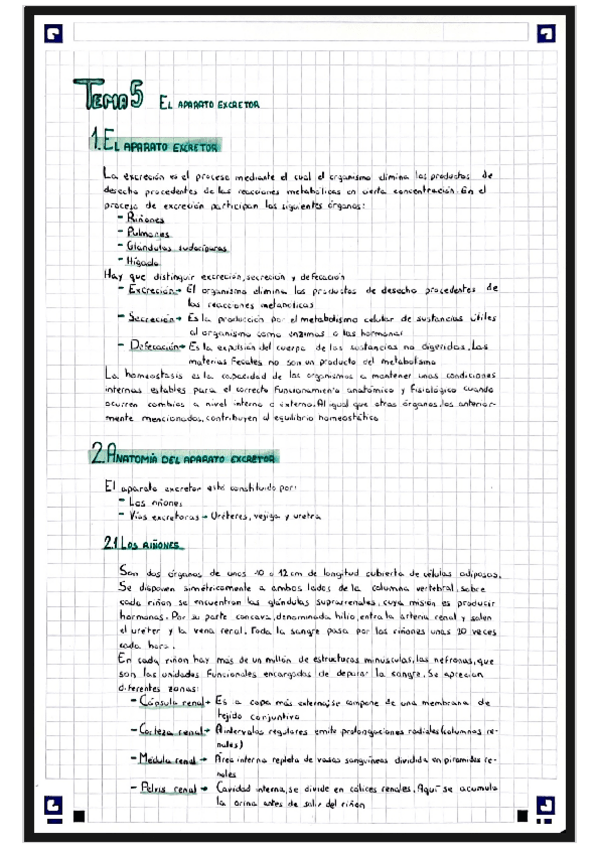 TEMA 5 EL APARATO EXCRETOR
1. EL APARATO EXCRETOR
La excreción es el proceso mediante el cual el organismo elimina los productos de
desecho procedentes de las reacciones metabólicas en cierta concentración. En el
proceso de excreción participan los siguientes órganos:
- Riñones
- Pulmones
- Glándulas sudoríparas
- Hígado
Hay que distinguir excreción, secreción y defecación
- Excreción → El organismo elimina los productos de desecho procedentes de
las reacciones metabólicas
- Secreción → Es la producción por el metabolismo celular de sustancias útiles
al organismo como enzimas o las hormonas
- Defecación → Es la expulsión del cuerpo de las sustancias no digeridas. Las
materias fecales no son un producto del metabolismo
La homeostasis es la capacidad de los organismos a mantener unas condiciones
internas estables para el correcto funcionamiento anatómico y fisiológico cuando
ocurren cambios a nivel interno o externo. Al igual que otros órganos, los anterior-
mente mencionados, contribuyen al equilibrio homeostático
2. ANATOMÍA DEL APARATO EXCRETOR
El aparato excretor está constituido por:
- Los riñones
- Vías excretoras → Uréteres, vejiga y uretra
2.1 LOS RIÑONES
Son dos órganos de unos 10 o 12 cm de longitud cubierta de células adiposas.
Se disponen simétricamente a ambos lados de la columna vertebral, sobre
cada riñon se encuentran las glándulas suprarrenales, cuya misión es producir
hormonas. Por su parte concava, denominada hilio, entra la arteria renal y salen
el uréter y la vena renal. Toda la sangre pasa por los riñones unas 20 veces
cada hora.
En cada riñon hay más de un millón de estructuras minusculas, las nefronas, que
son las unidades funcionales encargadas de depurar la sangre. Se aprecian
diferentes zonas:
- Cápsula renal → Es a capa más externa, se compone de una membrana de
tejido conjuntivo
- Corteza renal → A intervalos regulares emite prolongaciones radiales (columnas re-
nales)
- Médula renal → Área interna repleta de vasos sanguíneos dividida en piramides re-
nales
- Pelvis renal → Cavidad interna, se divide en cálices renales. Aquí se acumula
la orina antes de salir del riñon